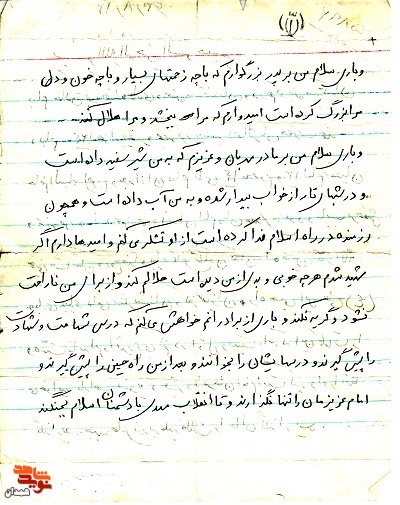 (۱)
و باری سلام من بر پدر بزرگوارم که با چه زحمتهای بسیار و با چه خون و دل
مرا بزرگ کرده است امیدوارم که مرا ببخشد و مرا حلال کند
و باری سلام من بر مادر مهربان و عزیزم که به من شیر سفید داده است
و در شبهای تار از خواب بیدار شده و به من آب داده است و همچون
رزمنده در راه اسلام فدا کرده است از او تشکر می کنم و امیدها دارم اگر
شهید شدم هر چه خوبی و بدی از من دیده است حلالم کند و از برای من ناراحت
نشود و گریه نکند و باری از برادرانم خواهش می کنم که درس شهامت و شهادت
را پیش گیرند و درسهایشان را بخوانند و بعد از من راه حسین را پیش گیرند و
امام عزیزمان را تنها نگذارند و تا انقلاب مهدی با دشمنان اسلام بجنگند
نوید شاهد
همدان